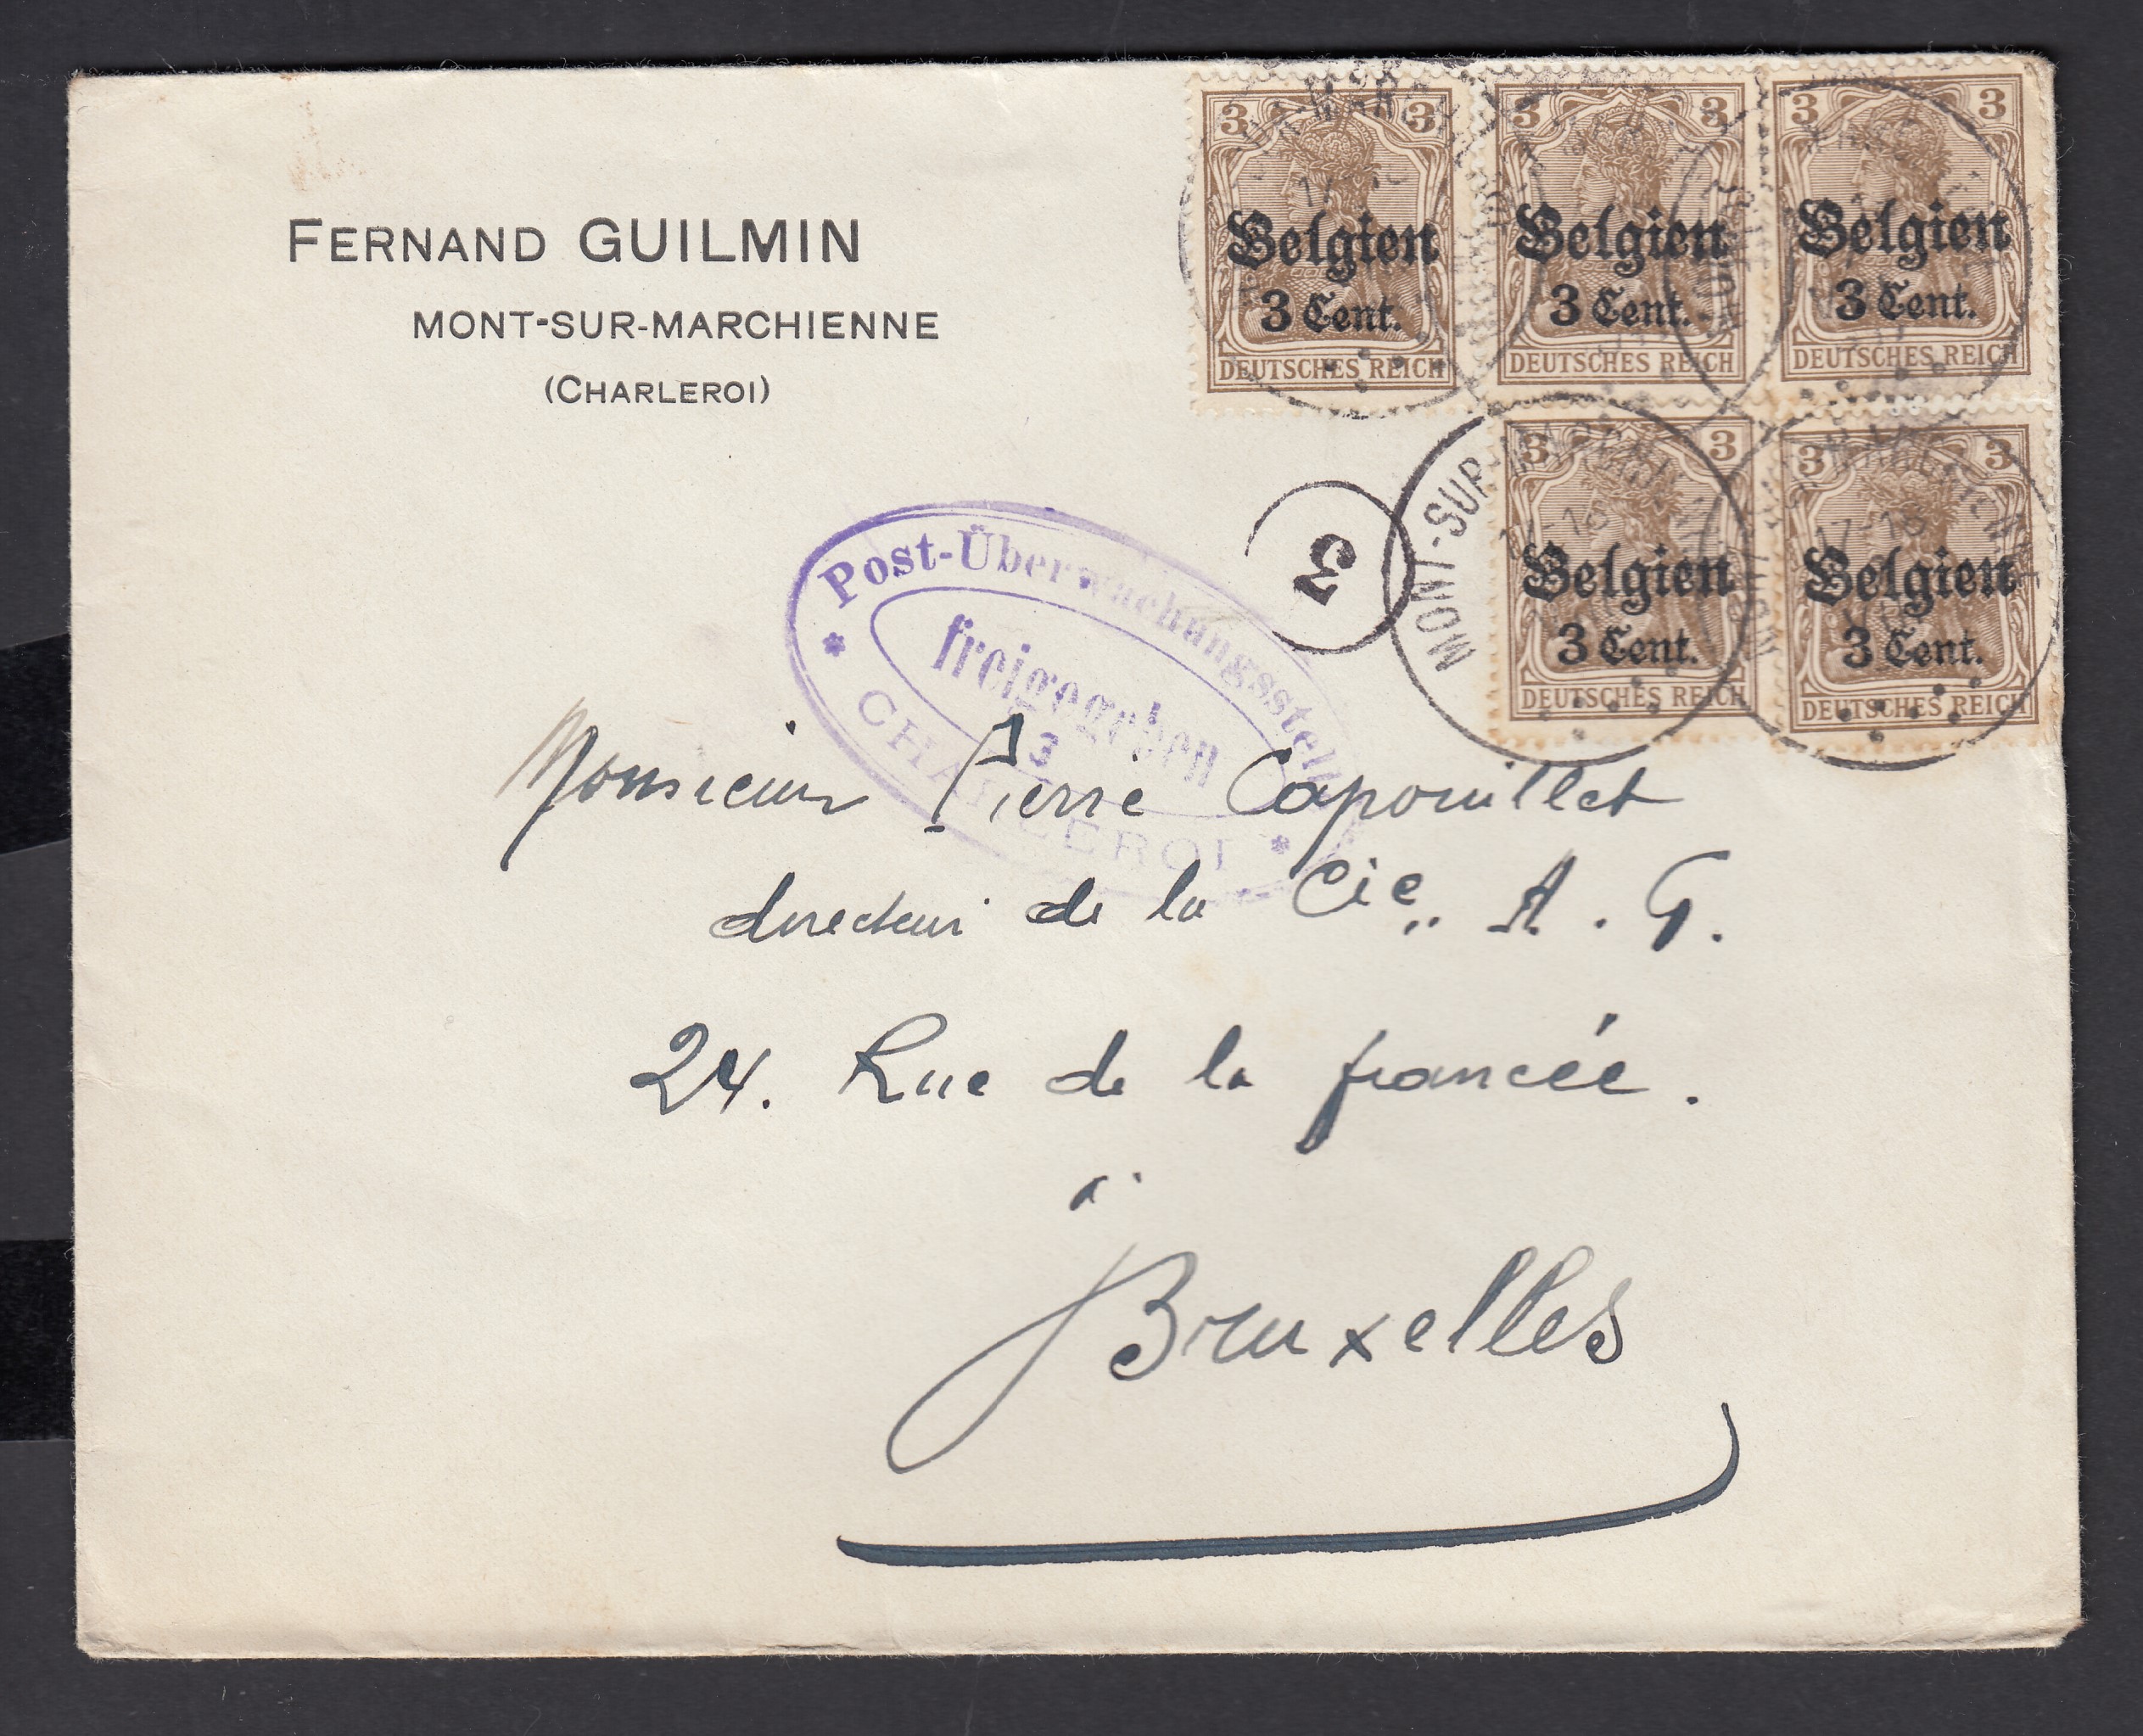 FERNAND GUILMIN
MONT-SUR-MARCHIENNE
(CHARLEROI)
3 3
Belgien
3 Cent.
DEUTSCHES REICH
3 3
Belgien
3 Cent.
DEUTSCHES REICH
3 3
Belgien
3 Cent.
DEUTSCHES REICH
3 3
Belgien
3 Cent.
DEUTSCHES REICH
3 3
Belgien
3 Cent.
DEUTSCHES REICH
MONT-SUR-MARCHIENNE
17-18
3
* Post-Überwachungsstelle *
freigegeben
3
CHARLEROI
Monsieur Pierre Capouillet
directeur de la Cie A. G.
24. Rue de la fiancée.
à
Bruxelles